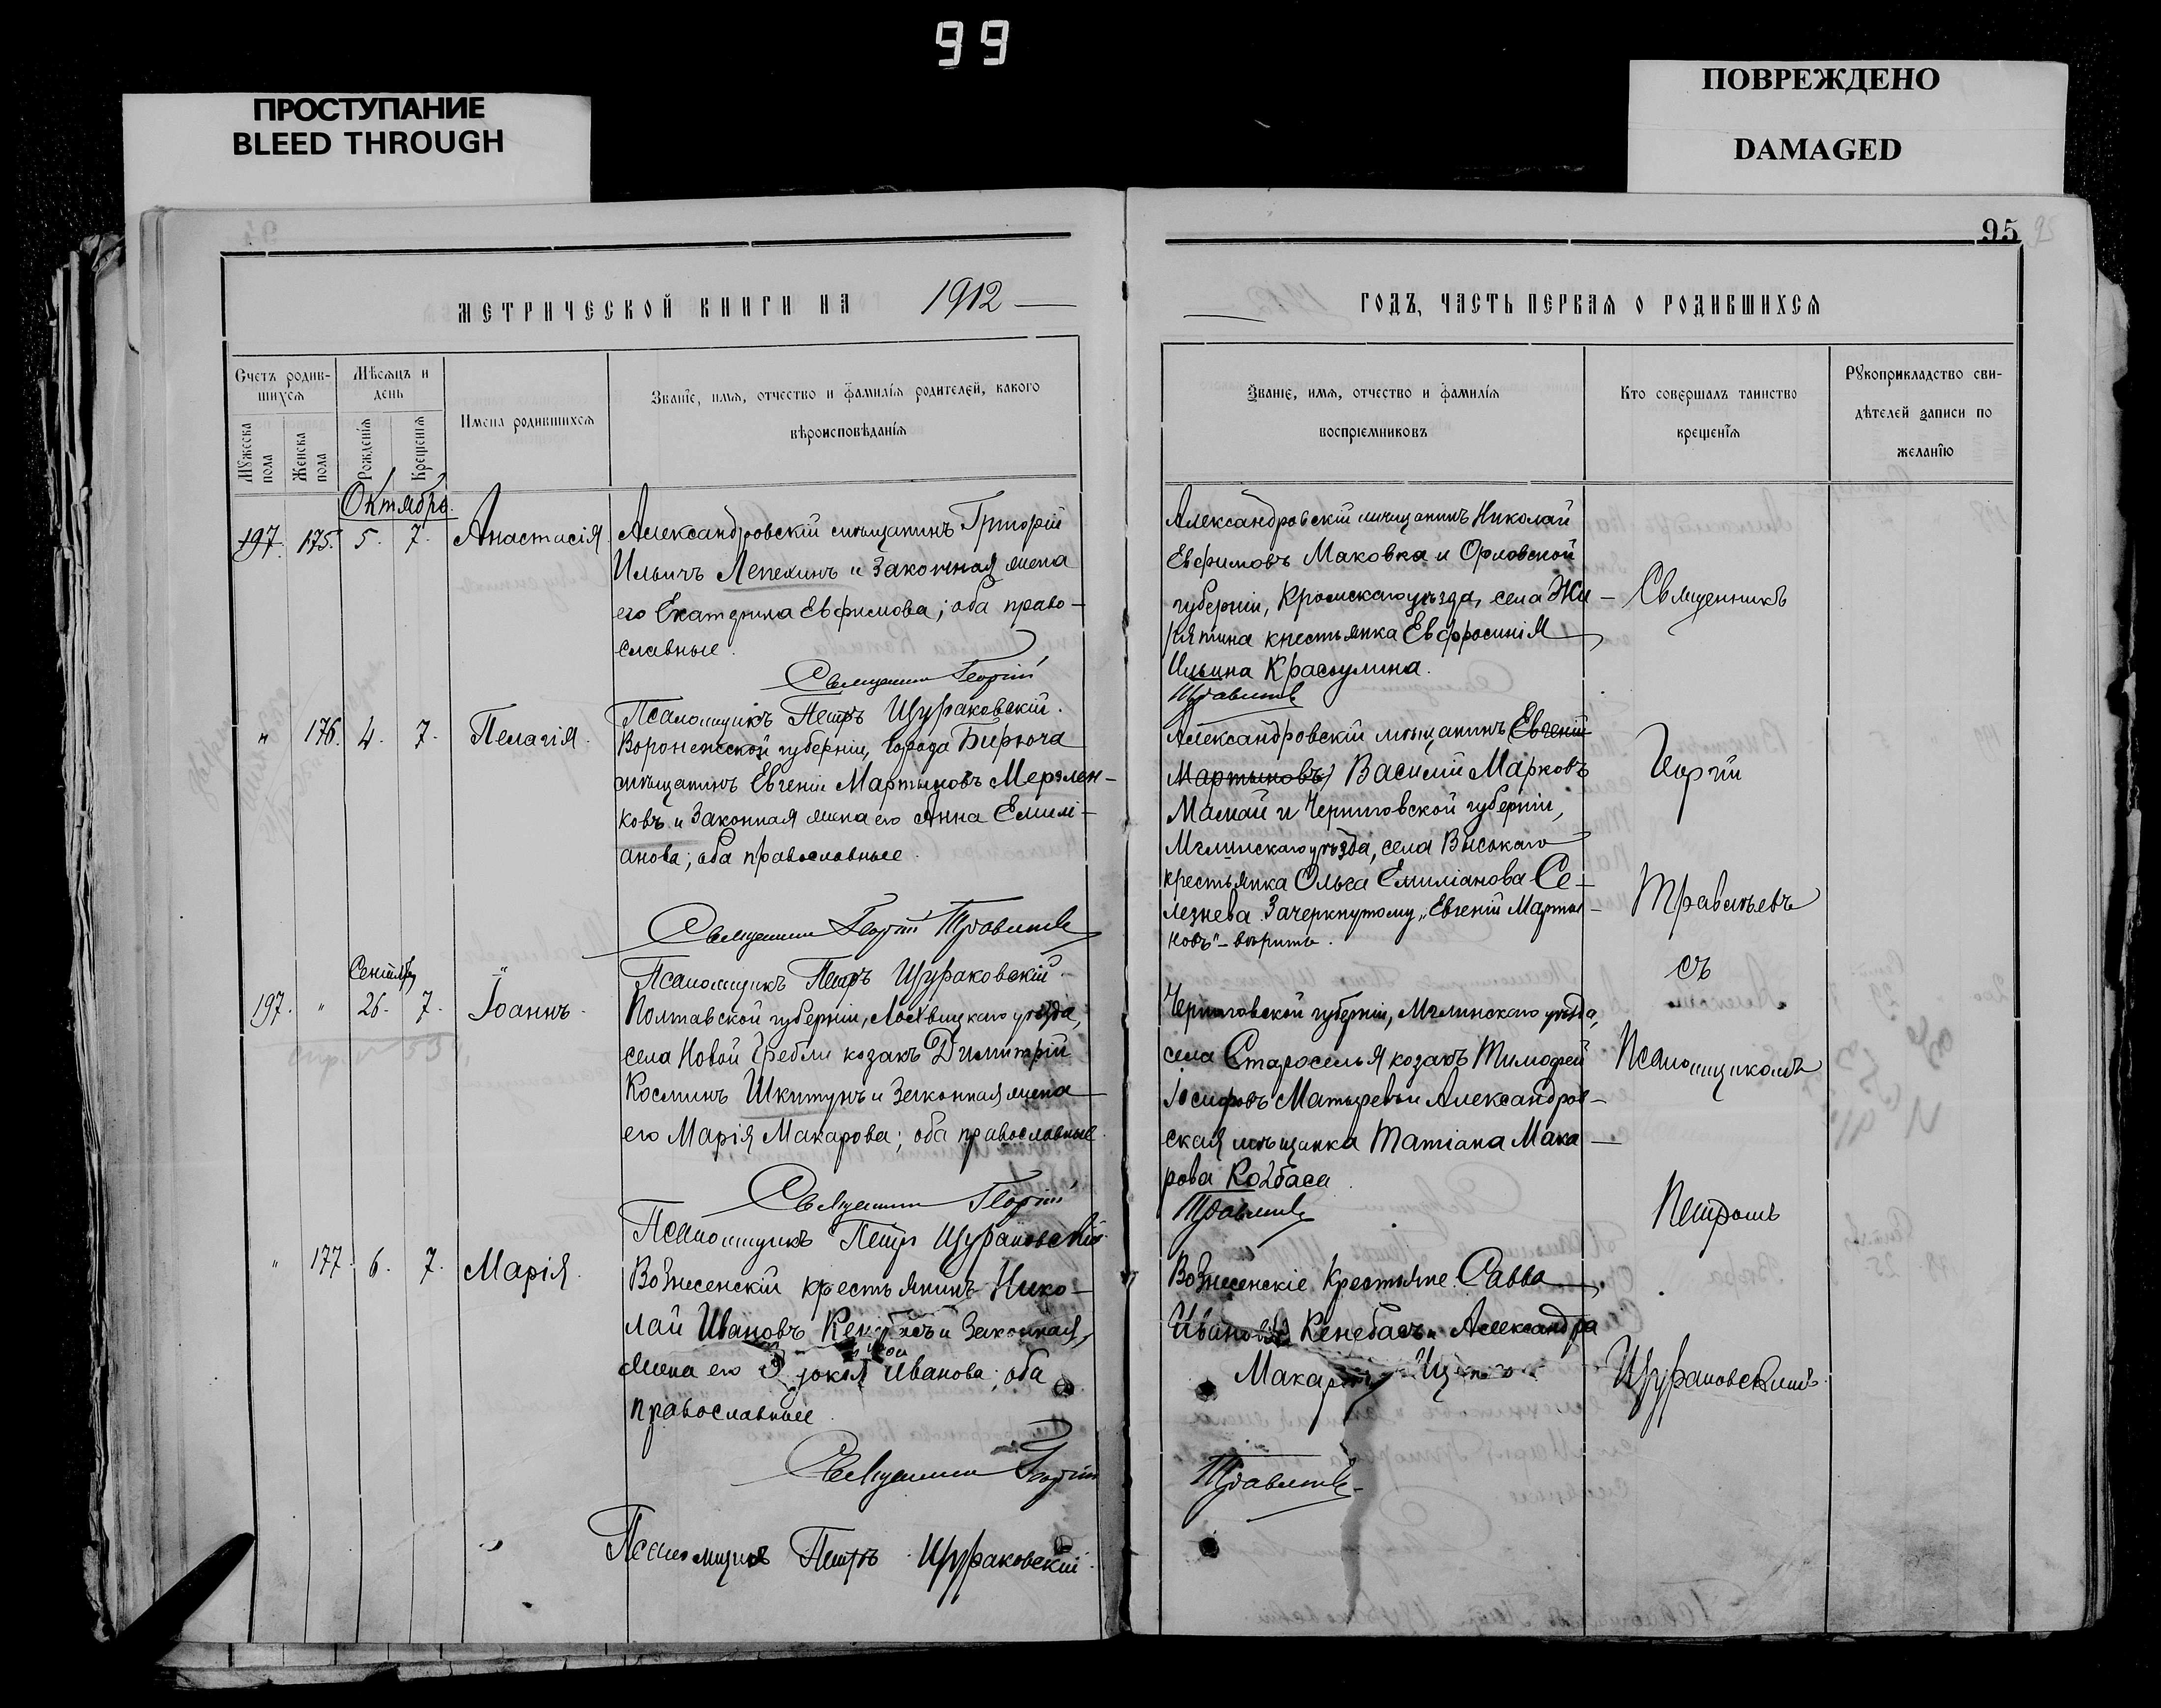 99
ПРОСТУПАНИЕ
BLEED THROUGH
ПОВРЕЖДЕНО
DAMAGED
95
95
МЕТРИЧЕСКОЙ КНИГИ НА 1912
ГОДЪ, ЧАСТЬ ПЕРВАЯ О РОДИВШИХСЯ
Счетъ родив-
шихся
Мѣсяцъ и
день
Мужеска пола
Женска пола
Рожденія
Крещенія
Имена родившихся
Званіе, имя, отчество и фамилія родителей, какого
вѣроисповѣданія
Званіе, имя, отчество и фамилія
воспріемниковъ
Кто совершалъ таинство
крещенія
Рукоприкладство сви-
дѣтелей записи по
желанію
Октябрь.
197. 175. 5. 7. Анастасія.
Александровскій мѣщанинъ Григорій
Ильичъ Лепехинъ и законная жена
его Екатерина Евфимова; оба право-
славные.
Священникъ Георгій
Псаломщикъ Петръ Щураковскій.
Александровскій мѣщанинъ Николай
Евфимовъ Маковка и Орловской
губерніи, Кромскаго уѣзда, села Жи-
рятина крестьянка Евфросинія
Ильина Красулина.
Травлѣевъ
" 176. 4. 7. Пелагія.
Воронежской губерніи, города Бирюча
мѣщанинъ Евгеній Мартыновъ Мерзлен-
ковъ и законная жена его Анна Емили-
анова; оба православные.
Священникъ Георгій Травлѣевъ
Псаломщикъ Петръ Щураковскій.
Александровскій мѣщанинъ Евгеній
Мартыновъ Василій Марковъ
Мамай и Черниговской губерніи,
Мглинскаго уѣзда, села Высокаго
крестьянка Ольга Емиліанова Се-
лезнева. Зачеркнутому „Евгеній Марты-
новъ" – вѣрить.
Сентябрь
197. " 26. 7. Іоаннъ.
Полтавской губерніи, Лохвицкаго уѣзда,
села Новой Гребли козакъ Димитрій
Косминъ Шкитунъ и законная жена
его Марія Макарова; оба православные.
Священникъ Георгій
Псаломщикъ Петръ Щураковскій.
Черниговской губерніи, Мглинскаго уѣзда,
села Староселья козакъ Тимофей
Іосифовъ и Александров-
ская мѣщанка Татіана Мака-
рова Колбаса.
Травлѣевъ
" 177. 6. 7. Марія.
Вознесенскій крестьянинъ Нико-
лай Ивановъ и законная
жена его Иванова; оба
православные.
Священникъ Георгій
Псаломщикъ Петръ Щураковскій.
Вознесенскіе крестьяне: Савва
Ивановъ Кенебасъ и Александра
Макарова
Травлѣевъ
Священникъ
Георгій
Травлѣевъ
съ
Псаломщикомъ
Петромъ
Щураковскимъ.